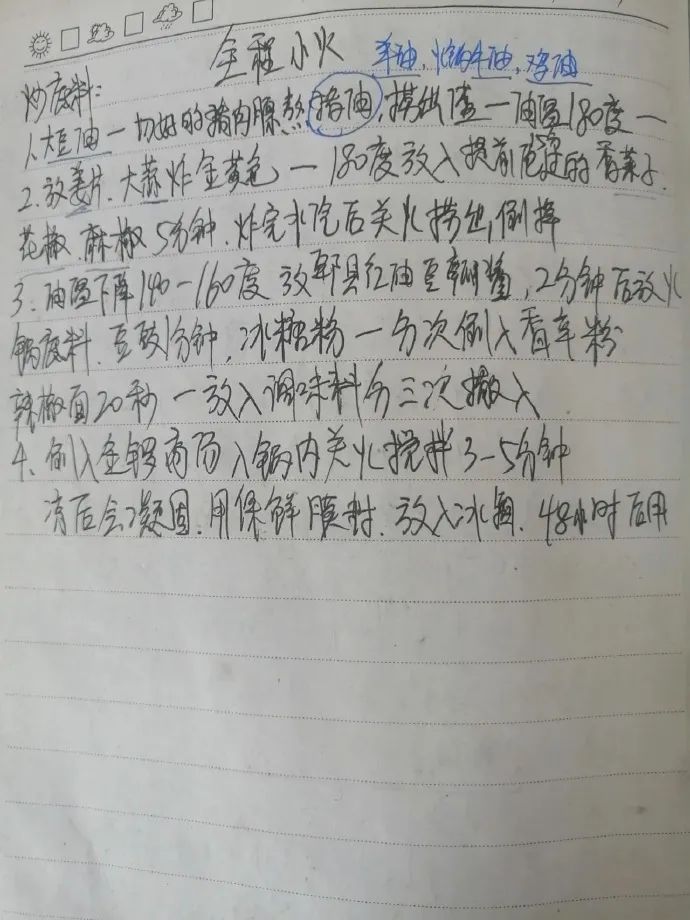 全程小火 羊油,火锅牛油,鸡油
炒底料:
1、大豆油—切好的猪肉膘熬猪油,捞出渣—油温180度—
2.放姜片.大蒜炸金黄色—180度放入提前泡的香菜子.
花椒.麻椒5分钟.炸完水汽后关火捞出,倒掉
3.油温下降140-160度放郫县红油豆瓣酱,2分钟后放火
锅底料.豆豉1分钟,冰糖粉—分次倒入香辛粉
辣椒面20秒—放入调味料分三次撒入
4、倒入金锣高汤入锅内关火搅拌3-5分钟
凉后会凝固.用保鲜膜封.放入冰箱.48小时后用